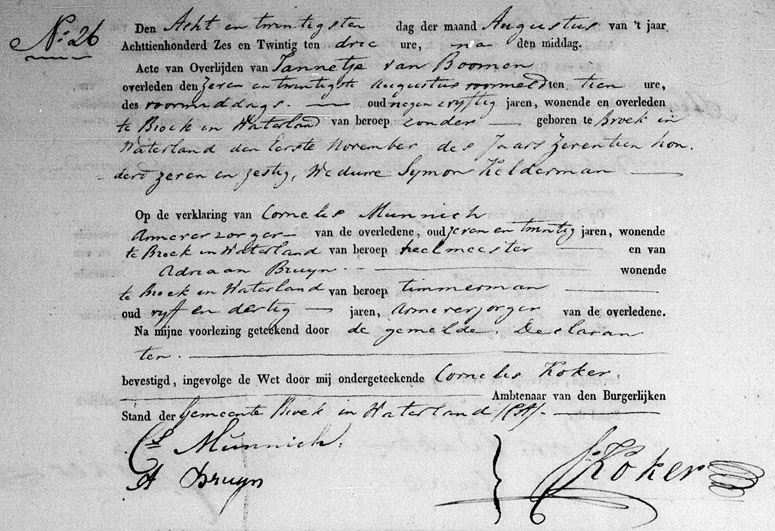 N:o 26
Den Acht en twintigsten dag der maand Augustus van 't jaar
Achttienhonderd Zes en Twintig ten drie ure, na den middag.
Acte van Overlijden van Jannetje van Boomen
overleden den zeven en twintigste Augustus voormeld ten tien ure,
des voormiddags. — oud negen vyftig jaren, wonende en overleden
te Broek in Waterland van beroep zonder — geboren te Broek in
Waterland den Eerste November des Jaars Zeventien hon-
derd zeven en zestig, Weduwe Symon Kelderman —
Op de verklaring van Cornelis Munnich
Armeverzorger — van de overledene, oud zeven en twintig jaren, wonende
te Broek in Waterland van beroep heelmeester — en van
Adriaan Bruyn. — wonende
te Broek in Waterland van beroep timmerman —
oud vyf en dertig — jaren, Armeverzorger van de overledene.
Na mijne voorlezing geteekend door de gemelde. Declaran
ten. —
bevestigd, ingevolge de Wet door mij ondergeteekende Cornelis Koker.
— Ambtenaar van den Burgerlijken
Stand der Gemeente Broek in Waterland —
Cs Munnich.
A Bruyn
CKoker